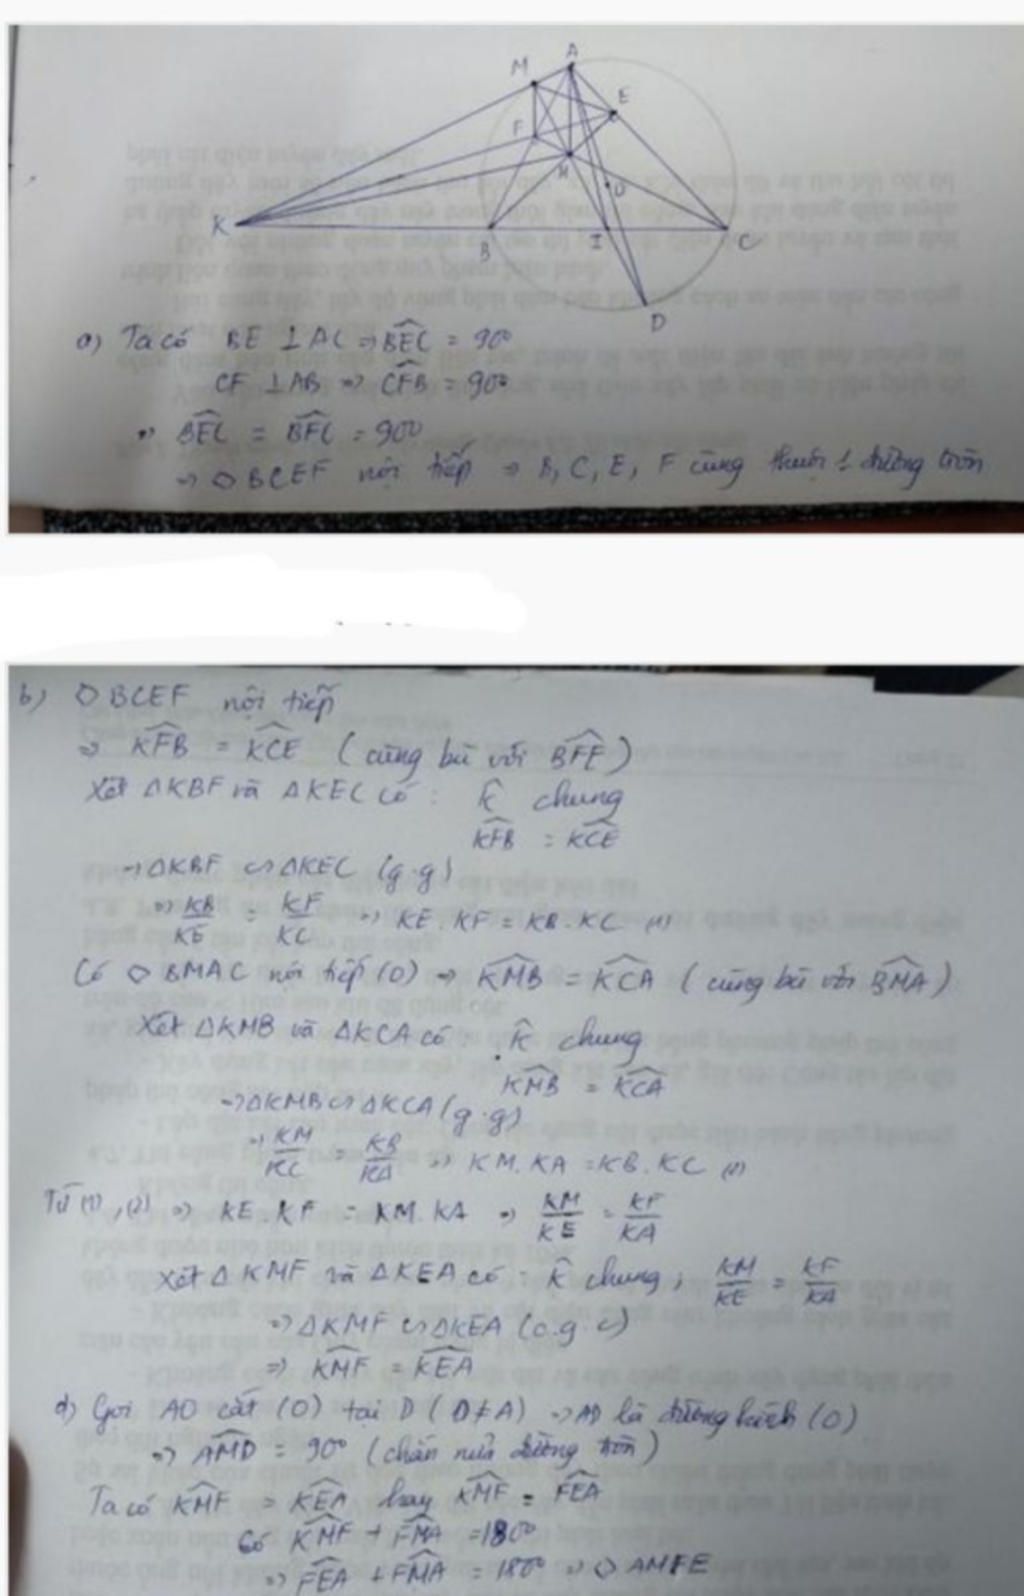 A
M
E
F
H
O
K
B
I
C
D
a) Ta có BE ⊥ AC => \widehat{BEC} = 90°
CF ⊥ AB => \widehat{CFB} = 90°
=> \widehat{BEC} = \widehat{BFC} = 90°
=> ◇ BCEF nội tiếp => B, C, E, F cùng thuộc 1 đường tròn
b) ◇ BCEF nội tiếp
=> \widehat{KFB} = \widehat{KCE} (cùng bù với \widehat{BFE})
Xét ΔKBF và ΔKEC có: \widehat{K} chung
\widehat{KFB} = \widehat{KCE}
=> ΔKBF ∽ ΔKEC (g.g)
=> \frac{KB}{KE} = \frac{KF}{KC} => KE.KF = KB.KC (1)
Có ◇ BMAC nội tiếp (O) => \widehat{KMB} = \widehat{KCA} (cùng bù với \widehat{BMA})
Xét ΔKMB và ΔKCA có: \widehat{K} chung
\widehat{KMB} = \widehat{KCA}
=> ΔKMB ∽ ΔKCA (g.g)
=> \frac{KM}{KC} = \frac{KB}{KA} => KM.KA = KB.KC (2)
Từ (1), (2) => KE.KF = KM.KA => \frac{KM}{KE} = \frac{KF}{KA}
Xét Δ KMF và ΔKEA có: \widehat{K} chung; \frac{KM}{KE} = \frac{KF}{KA}
=> ΔKMF ∽ ΔKEA (c.g.c)
=> \widehat{KMF} = \widehat{KEA}
d) Gọi AO cắt (O) tại D (D≠A) => AD là đường kính (O)
=> \widehat{AMD} = 90° (chắn nửa đường tròn)
Ta có \widehat{KMF} = \widehat{KEA} hay \widehat{KMF} = \widehat{FEA}
Có \widehat{KMF} + \widehat{FMA} = 180°
=> \widehat{FEA} + \widehat{FMA} = 180° => ◇ AMFE